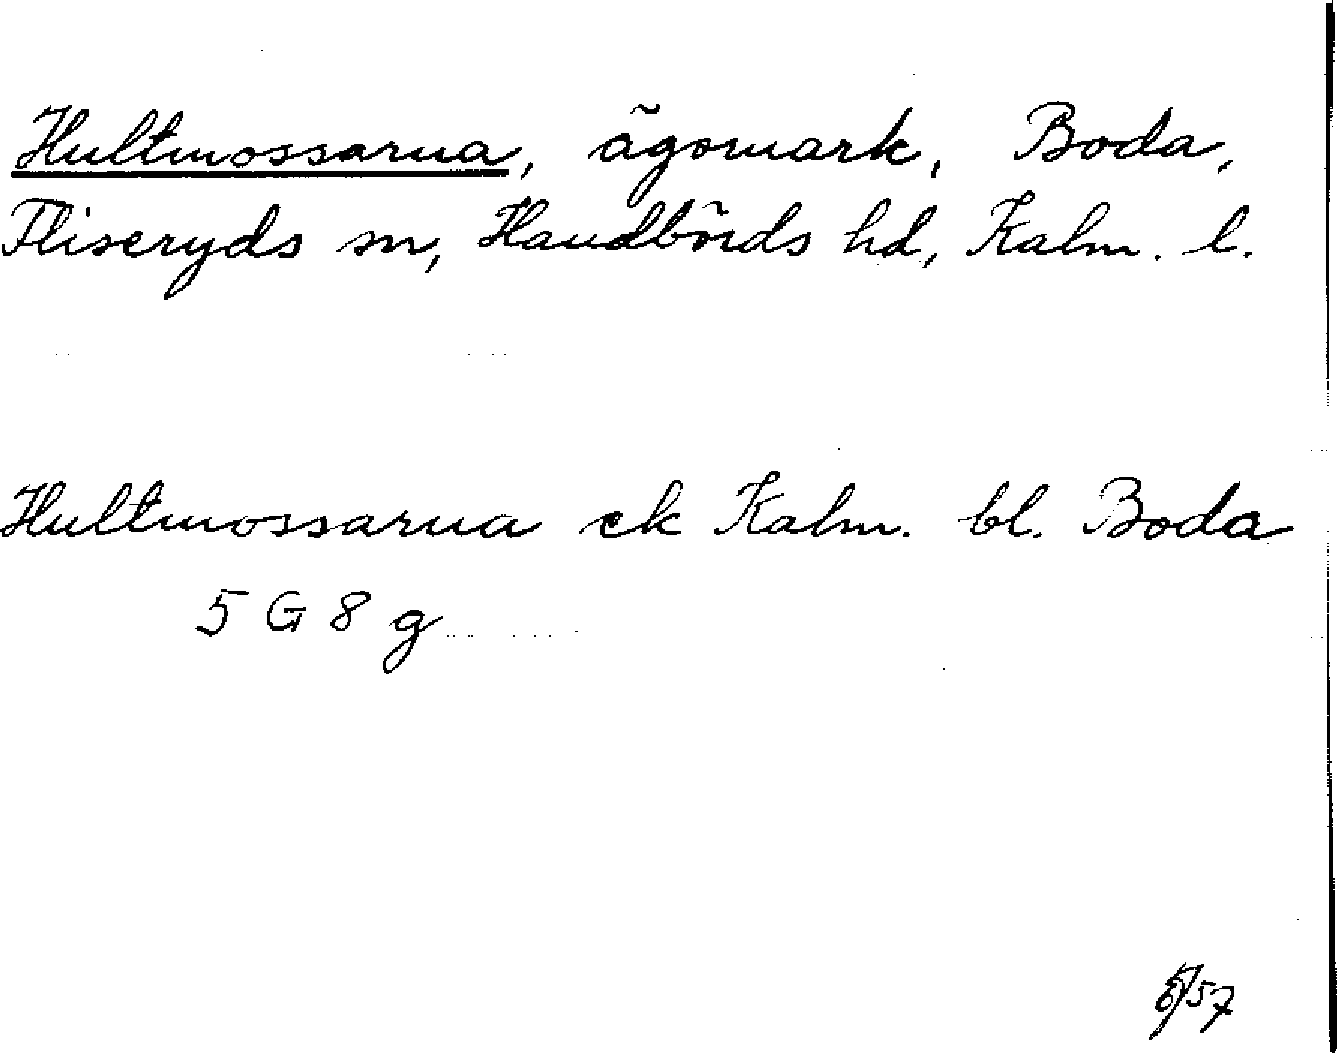 Hultmossarna, ägomark, Boda,
Fliseryds sn, Handbörds hd, Kalm. l.
Hultmossarna ek Kalm. bl. Boda
5 G 8 g